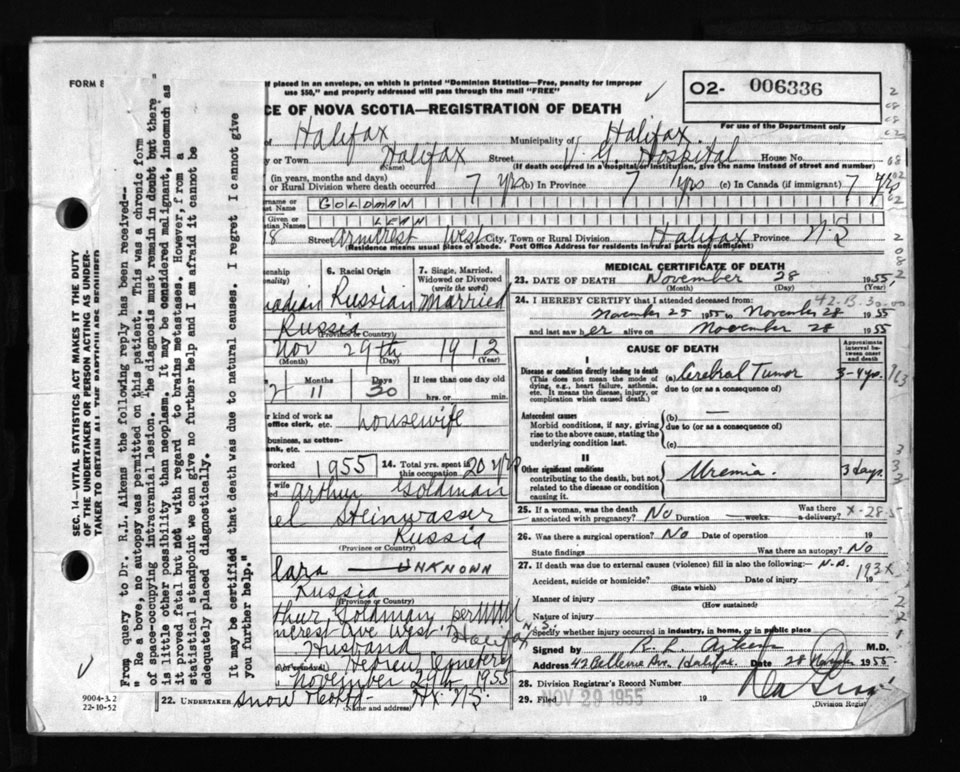 FORM 8
if placed in an envelope, on which is printed "Dominion Statistics—Free, penalty for improper
use $50," and properly addressed will pass through the mail "FREE"
O2- 006336
For use of the Department only
CE OF NOVA SCOTIA—REGISTRATION OF DEATH
of Halifax Municipality of Halifax
y or Town Halifax Street V. G. Hospital House No.
(Name) (If death occurred in a hospital or institution, give the name instead of street and number)
(in years, months and days)
n or Rural Division where death occurred 7 yrs (b) In Province 7 yrs (c) In Canada (if immigrant) 7 yrs
urname or
st Name GOLDMAN
Given or
stian Names LEAH
18 Street Armcrest West City, Town or Rural Division Halifax Province N.S
(Residence means usual place of abode. Post Office Address for residents in rural parts not sufficient)
zenship
nality) 6. Racial Origin 7. Single, Married, Widowed or Divorced (write the word)
nadian Russian Married
Russia
(Province or Country)
Nov 29th 1912
(Month) (Day) (Year)
2 Months 11 Days 30 If less than one day old
hrs. or min.
r kind of work as
office clerk, etc. housewife
business, as cotton-
nk, etc.
worked 1955 14. Total yrs. spent in 20 yrs
wife Arthur Goldman
el Steinwasser
Russia
(Province or Country)
lara — UNKNOWN
Russia
(Province or Country)
thur Goldman per
mcrest Ave West. Halifax N.S.
Husband
Hebrew Cemetery
November 29th 1955
22. UNDERTAKER Snow Hx N.S.
(Name and address)
MEDICAL CERTIFICATE OF DEATH
23. DATE OF DEATH November 28 1955
(Month) (Day)
24. I HEREBY CERTIFY that I attended deceased from:
November 25 1955 to November 28 1955
and last saw her alive on November 28 1955
CAUSE OF DEATH
Approximate interval between onset and death
I
Disease or condition directly leading to death (a) Cerebral Tumor 3-4 yrs.
(This does not mean the mode of dying, e.g., heart failure, asthenia, etc. It means the disease, injury, or complication which caused death.)
due to (or as a consequence of)
Antecedent causes (b) —
Morbid conditions, if any, giving rise to the above cause, stating the underlying condition last.
due to (or as a consequence of)
(c)
II
Other significant conditions Uremia. 3 days.
contributing to the death, but not related to the disease or condition causing it.
25. If a woman, was the death associated with pregnancy? No Duration weeks. Was there a delivery?
26. Was there a surgical operation? No Date of operation 19
State findings Was there an autopsy? No
27. If death was due to external causes (violence) fill in also the following:— N.A.
Accident, suicide or homicide? Date of injury 19
(State which)
Manner of injury
(How sustained)
Nature of injury
Specify whether injury occurred in industry, in home, or in public place
Signed by R. L. Aikens M.D.
Address 42 Bellevue Ave. Halifax. Date 28 November 1955
28. Division Registrar's Record Number
29. Filed NOV 29 1955 19
(Division Registrar
9004-3.2
22-10-52
SEC. 14—VITAL STATISTICS ACT MAKES IT THE DUTY
OF THE UNDERTAKER OR PERSON ACTING AS UNDER-
TAKER TO OBTAIN ALL THE PARTICULARS REQUIRED
From query to Dr. R.L. Aikens the following reply has been received--
" Re a bove, no autopsy was permitted on this patient. This was a chronic form
of space-occupying intracranial lesion. The diagnosis must remain in doubt but there
is little other possibility than neoplasm. It may be considered malignant, insomuch as
it proved fatal but not with regard to brains metastases. However, from a
statistical standpoint we can give no further help and I am afraid it cannot be
adequately placed diagnostically.
It may be certified that death was due to natural causes. I regret I cannot give
you further help."